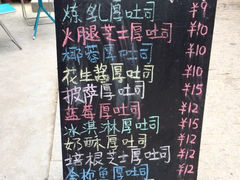 炼乳厚吐司 ¥9
火腿芝士厚吐司 ¥10
椰蓉厚吐司 ¥10
花生酱厚吐司 ¥10
披萨厚吐司 ¥15
蓝莓厚吐司 ¥12
冰淇淋厚吐司 ¥12
奶酥厚吐司 ¥12
培根芝士厚吐司 ¥12
金枪鱼厚吐司 ¥12